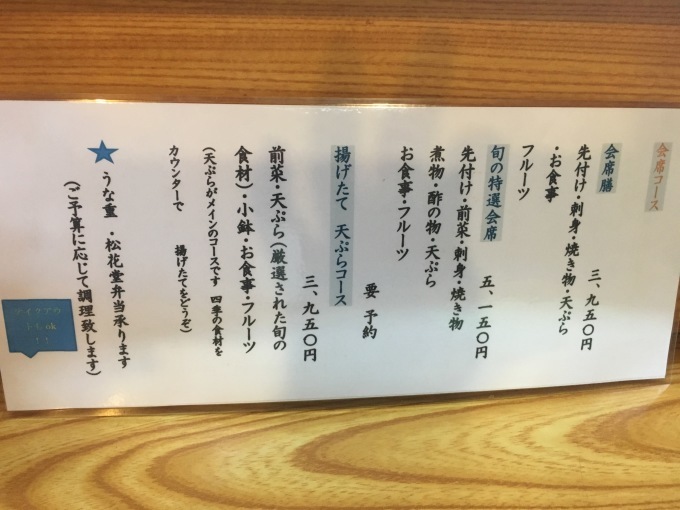 会席コース
会席膳　三、九五〇円
先付け・刺身・焼き物・天ぷら
・お食事
フルーツ
旬の特選会席　五、一五〇円
先付け・前菜・刺身・焼き物
煮物・酢の物・天ぷら
お食事・フルーツ
要　予約
揚げたて　天ぷらコース
三、九五〇円
前菜・天ぷら（厳選された旬の
食材）・小鉢・お食事・フルーツ
（天ぷらがメインのコースです　四季の食材を
カウンターで　揚げたてをどうぞ）
★うな重　・松花堂弁当承ります
（ご予算に応じて調理致します）
テイクアウ
トもok
！！